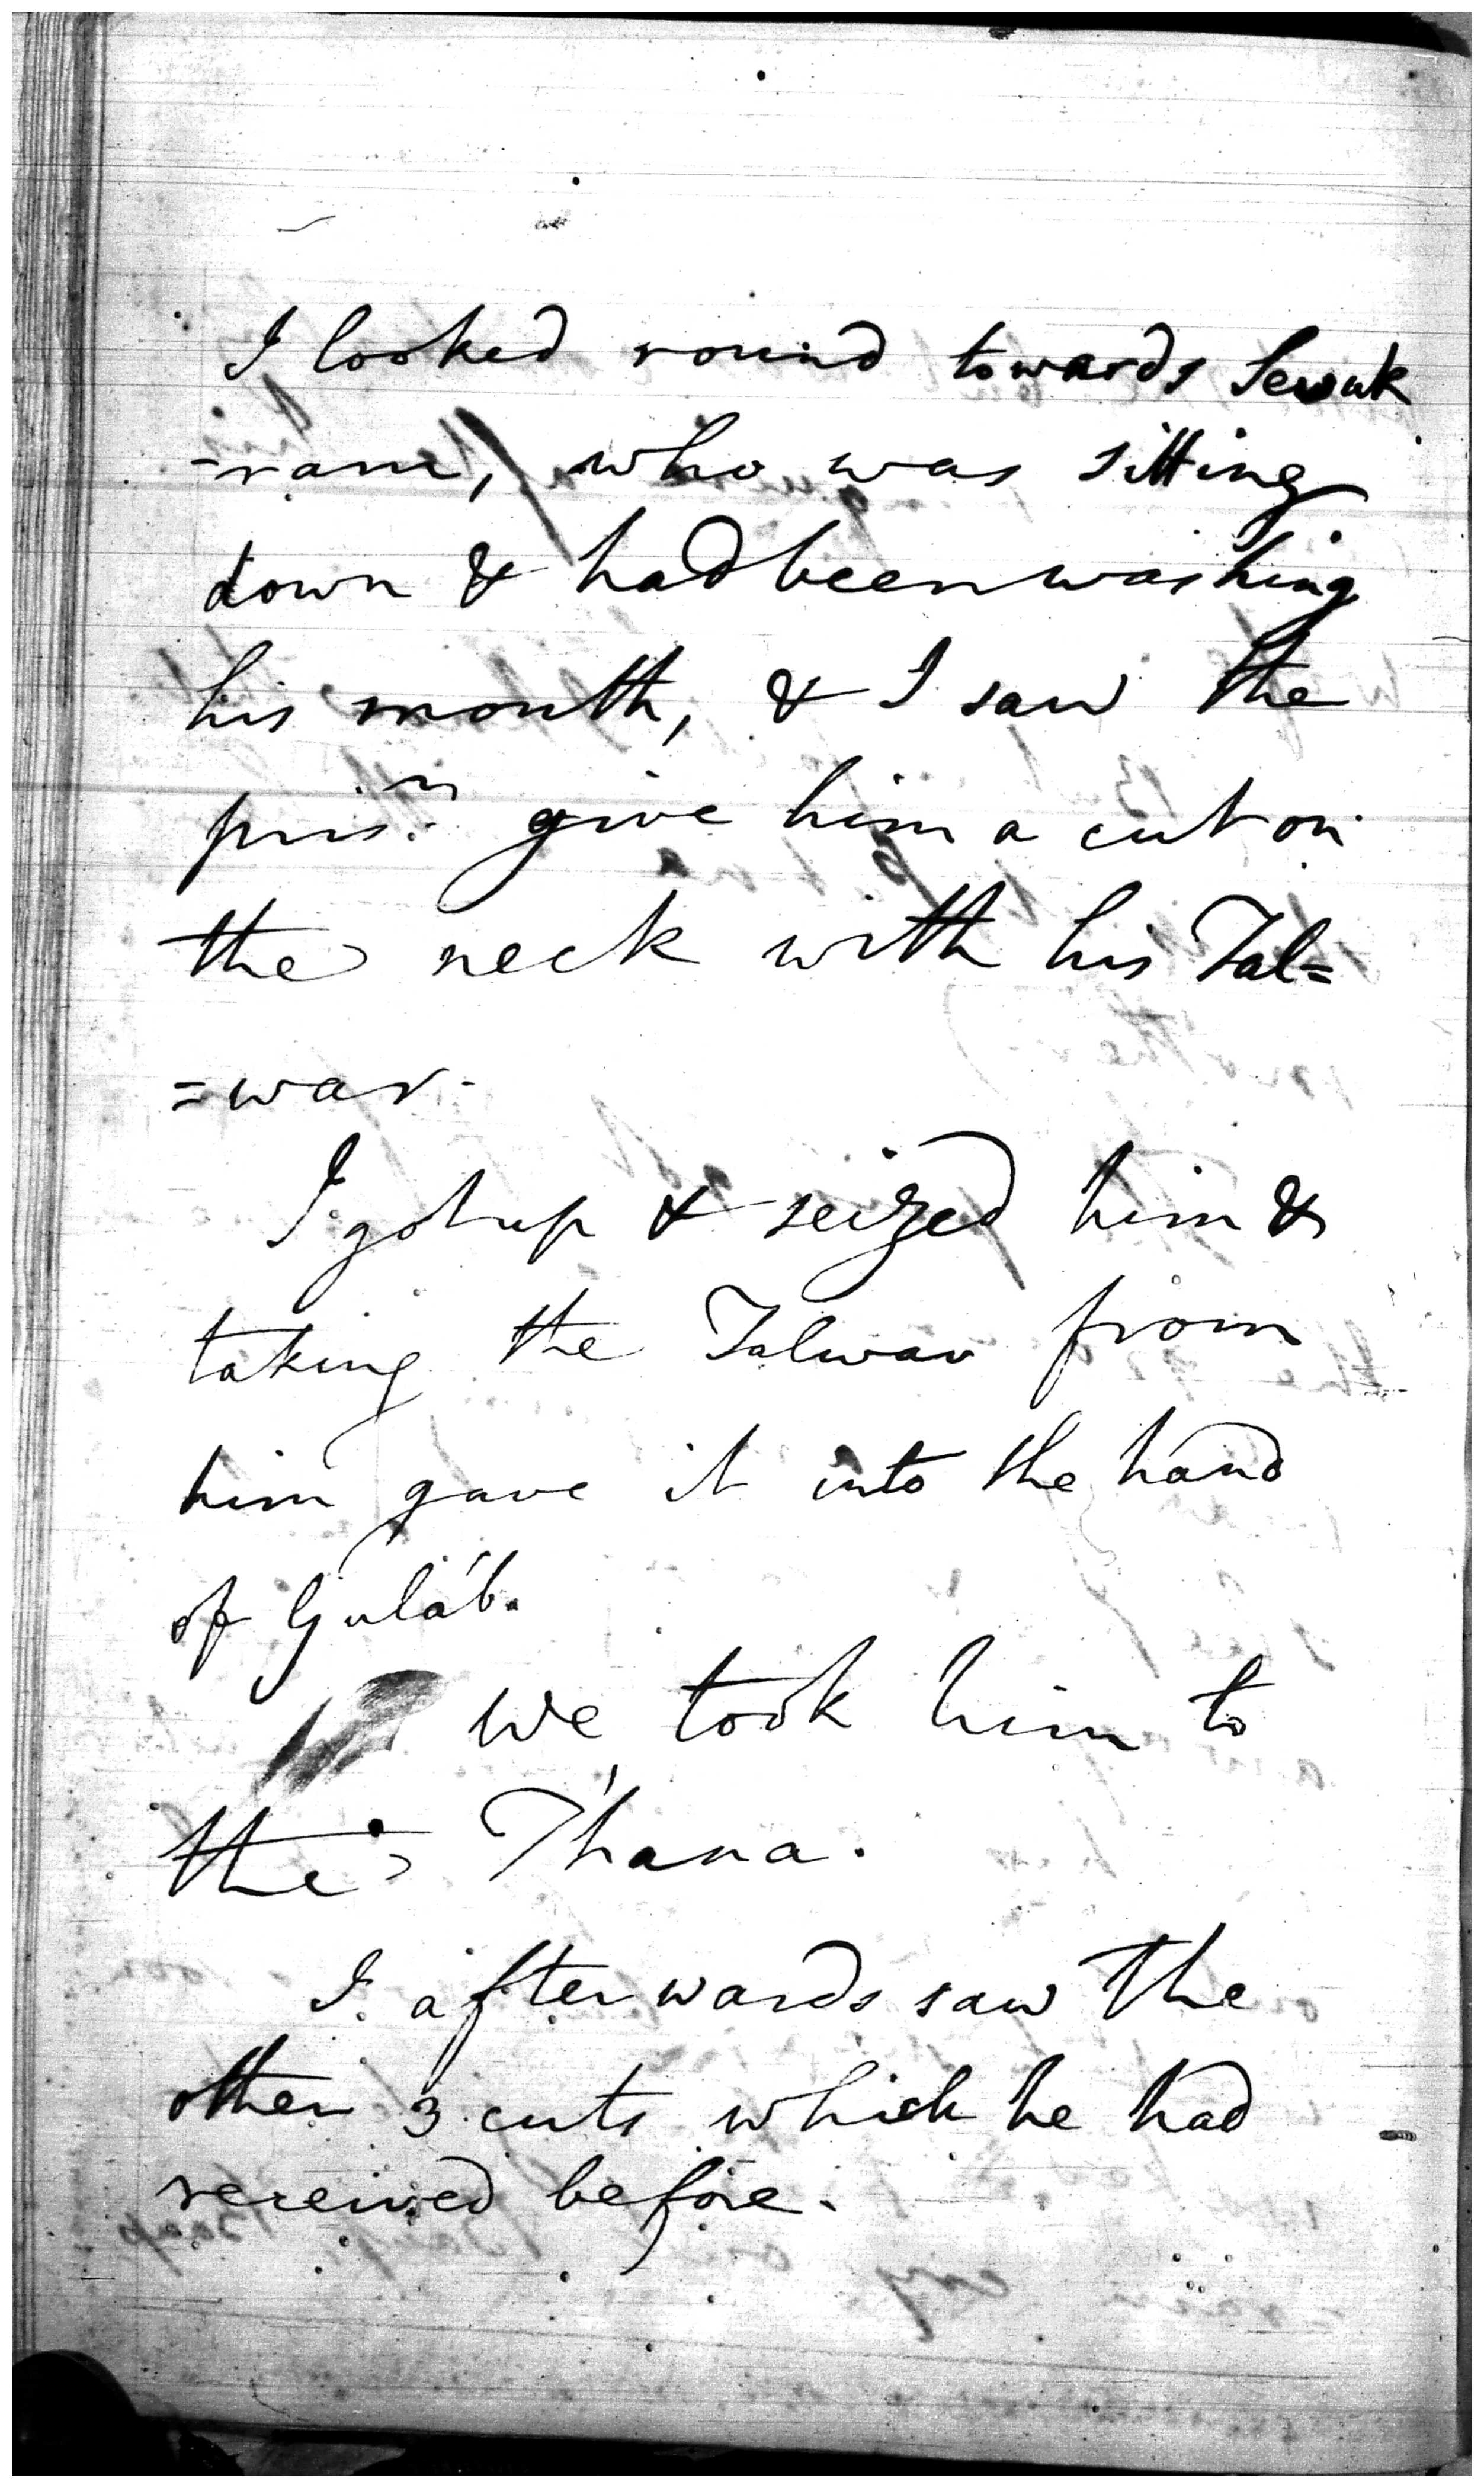 I looked round towards Sewuk
-ram, who was sitting
down & had been washing
his mouth, & I saw the
prisr. give him a cut on
the neck with his Tal=
=war.
I got up & seized him &
taking the Talwar from
him gave it into the hand
of Guláb.
We took him to
the T'hana.
I afterwards saw the
other 3 cuts which he had
received before.